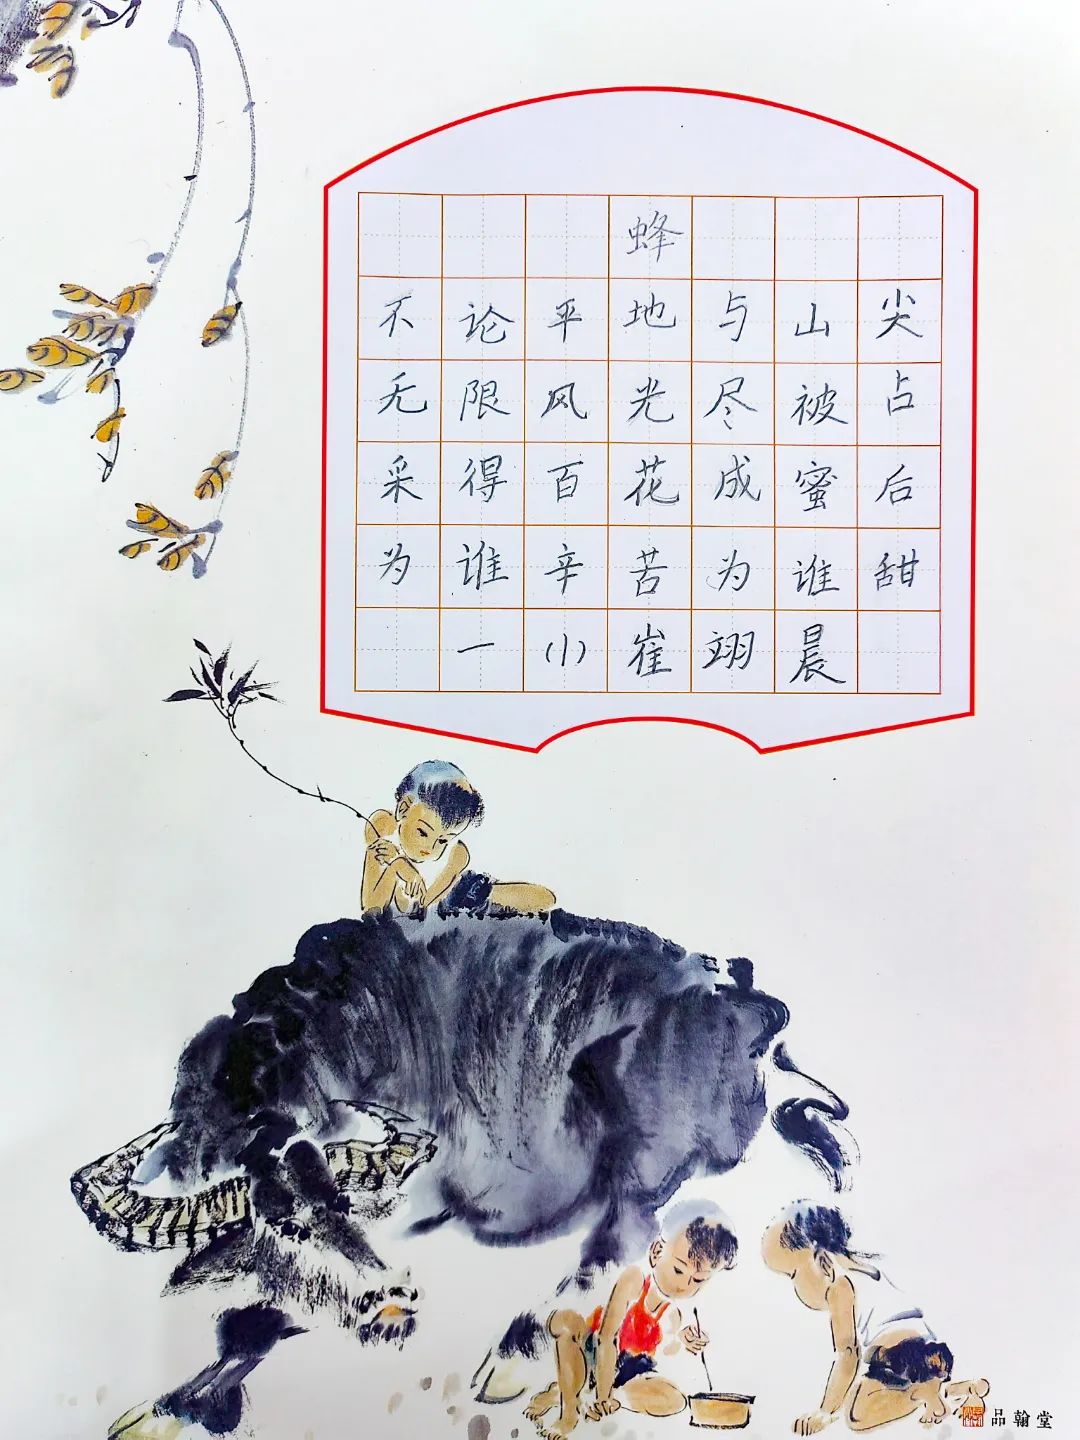 蜂
不论平地与山尖
无限风光尽被占
采得百花成蜜后
为谁辛苦为谁甜
一小崔翊晨
品翰堂